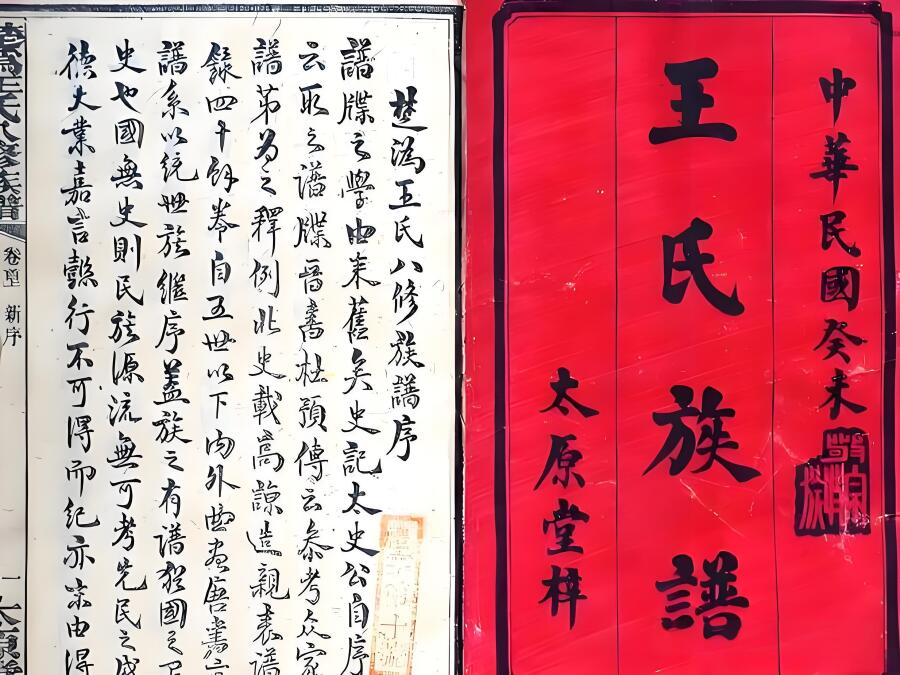 中華民國癸未
王氏族譜
太原堂梓
楚溈王氏八修族譜序
譜牒之學由来舊矣史記太史公自序
云取之譜牒晉書杜預傳云叅考众家
譜第為之釋例北史載高諒造親表譜
錄四十餘卷自五世以下內外曲盡唐書
譜系以統世族繼序蓋族之有譜猶國之
史也國無史則民族源流無可考先民之盛
德大業嘉言懿行不可得而紀亦末由得
楚溈王氏八修族譜
新序
一